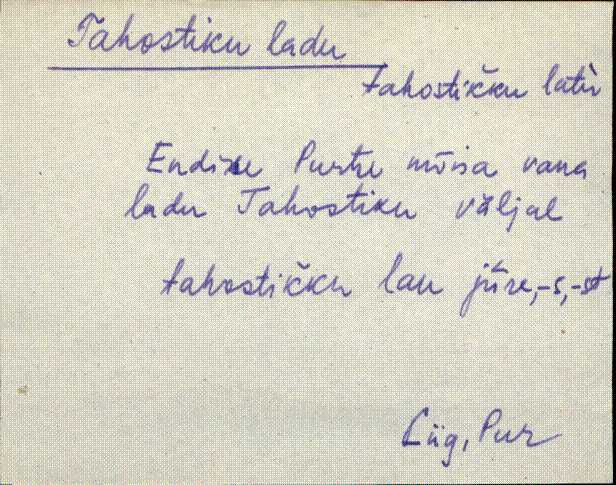 Tahostiku ladu
tahostičku latù
Endise Purtse mõisa vana
ladu Tahostiku väljal
tahostičku lau jù̄re,-s,-st
Lüg, Pur